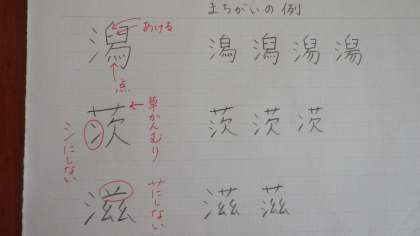 まちがいの例
潟 あける 潟 潟 潟 潟
点
茨 草かんむり 茨 茨 茨
シにしない
滋 艹にしない 滋 滋